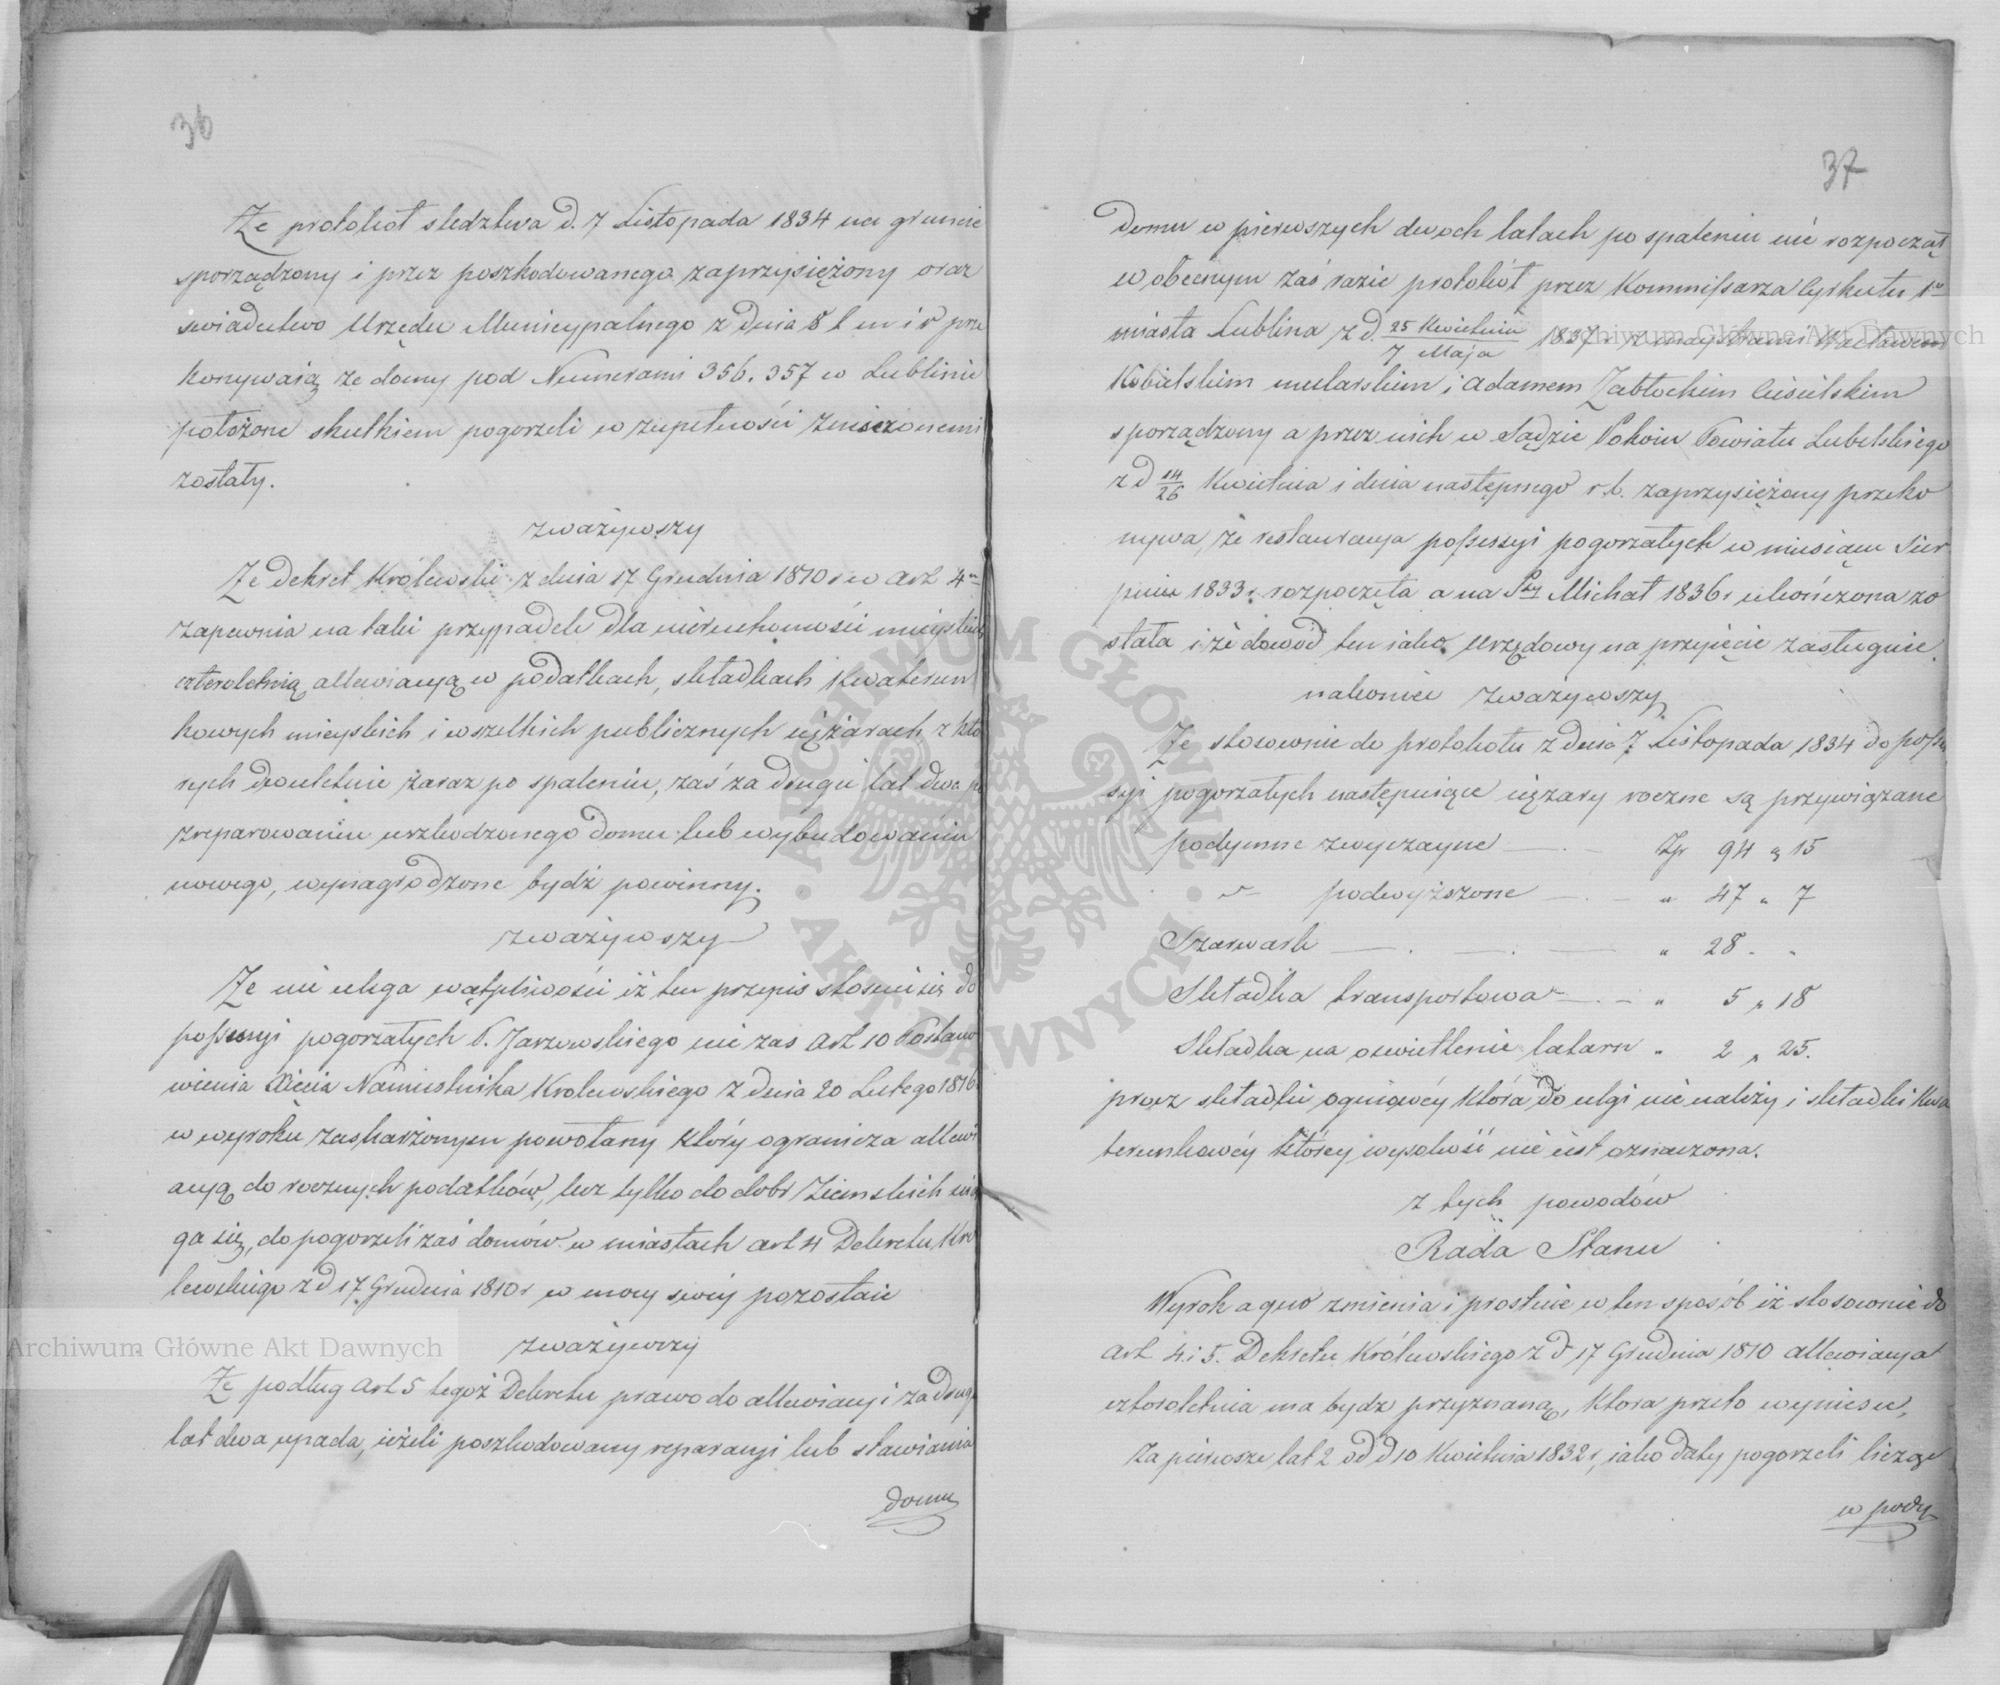 36
Że protokół sledztwa d. 7 Listopada 1834 na gruncie
sporządzony i przez poszkodowanego zaprzysiężony oraz
swiadectwo Urzędu Municypalnego z dnia 8 t m i r prze
konywaią że domy pod Numerami 356. 357 w Lublinie
położone skutkiem pogorzeli w zupełności zniszczonemi
zostały.
zważywszy
Że Dekret Królewski z dnia 17 Grudnia 1810 r w Art 4m
zapewnia na taki przypadek dla nieruchomości mieyskich
czteroletnią allewiacyą w podatkach, składkach kwaterun
kowych mieyskich i wszelkich publicznych ciężarach z któ
rych dwuletnie zaraz po spaleniu, zaś za drugie lat dwa po
zreparowaniu uszkodzonego domu lub wybudowaniu
nowego, wynagrodzone bydź powinny.
zważywszy
Że nie ulega wątpliwości iż ten przepis stosuie się do
possessyi pogorzałych P. Jarzewskiego nie zas Art 10 Postano
wienia Xięcia Namiestnika Krolewskiego z dnia 20 Lutego 1816
w wyroku zaskarżonym powołany który ogranicza allewi
acyą do rocznych podatków, lecz tylko do dobr Ziemskich ścią
ga się, do pogorzeli zaś domów w miastach art 4 Dekretu Kró
lewskiego z d 17 Grudnia 1810 r w mocy swéy pozostaie
zważywszy
Że podług Art 5 tegoż Dekretu prawo do allewiacyi za drugie
lat dwa upada, ieżeli poszkodowany reparacyi lub stawiania
domu
37
domu w pierwszych dwoch latach po spaleniu nie rozpoczął
w obecnym zaś razie protokół przez Kommissarza Cyrkułu 1go
miasta Lublina z d. 25 Kwietnia / 7 Maja 1837 r z maystrami Wacławem
Kobielskim mularskim i Adamem Zabłockim Ciesielskim
sporządzony a przez nich w Sądzie Pokoiu Powiatu Lubelskiego
z d 14/26 Kwietnia i dnia następnego r. b. zaprzysiężony przeko
nywa, że restauracya possessyi pogorzałych w miesiącu Sier
pniu 1833 r rozpoczęta a na Sty Michał 1836 r ukończona zo
stała i że dowód ten iako Urzędowy na przyięcie zasługuie.
nakoniec zważywszy
Że stosownie do protokołu z dnia 7 Listopada 1834 do posse
syi pogorzałych następuiące ciężary roczne są przywiązane
podymne zwyczayne — . — Złp 94 g 15
" podwyższone — . — " 47 " 7
Szarwark — . — . — " 28 " "
Składka transportowa — . — " 5 " 18
Składka na oswietlenie latarn " 2 " 25.
procz składki ogniowéy która do ulgi nie należy i składki Kwa
terunkowéy któréy wysokość nie iest oznaczona.
z tych powodów
Rada Stanu
Wyrok a quo zmienia i prostuie w ten sposób iż stosownie do
Art 4. i 5. Dekretu Królewskiego z d 17 Grudnia 1810 allewiacya
czteroletnia ma bydz przyznaną, która przeto wyniesie,
za pierwsze lat 2 od d 10 Kwietnia 1832 r, iako daty pogorzeli licząc
w pody
Archiwum Główne Akt Dawnych
Archiwum Główne Akt Dawnych
ARCHIWUM GŁÓWNE AKT DAWNYCH